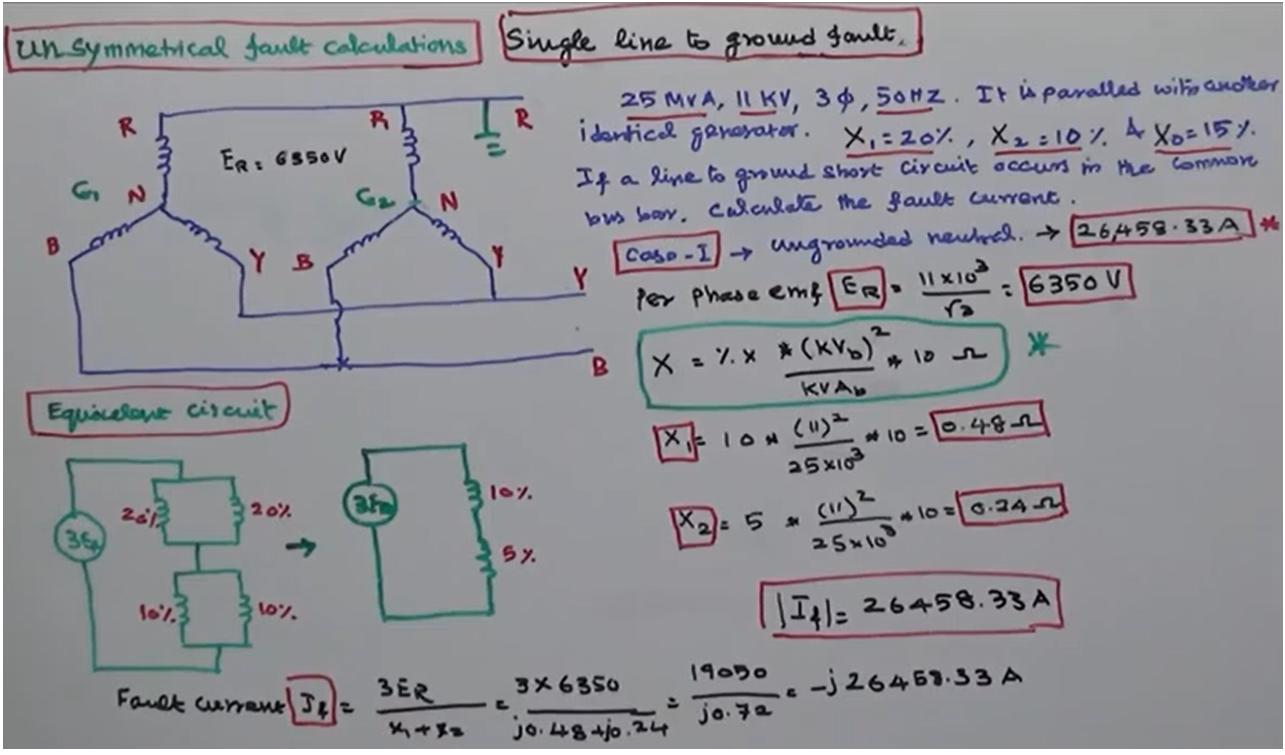 Unsymmetrical fault calculations
Single line to ground fault.
25 MVA, 11 KV, 3φ, 50HZ. It is paralled with another
identical generator. X1=20%, X2=10% & X0=15%.
If a line to ground short circuit occurs in the common
bus bar. Calculate the fault current.
Case-I → ungrounded neutral. → 26,458.33A *
Per phase emf ER = 11×10³/√3 = 6350V
X = %X * (KVb)²/KVAb * 10 Ω *
X1 = 10 * (11)²/25×10³ * 10 = 0.48Ω
X2 = 5 * (11)²/25×10³ * 10 = 0.24Ω
|If| = 26458.33A
R
R
R
ER = 6350V
G1
N
G2
N
B
Y
B
Y
Y
B
Equivalent circuit
3ER
20%
20%
10%
10%
→
3ER
10%
5%
Fault current If = 3ER/x1+x2 = 3×6350/j0.48+j0.24 = 19050/j0.72 = -j26458.33A